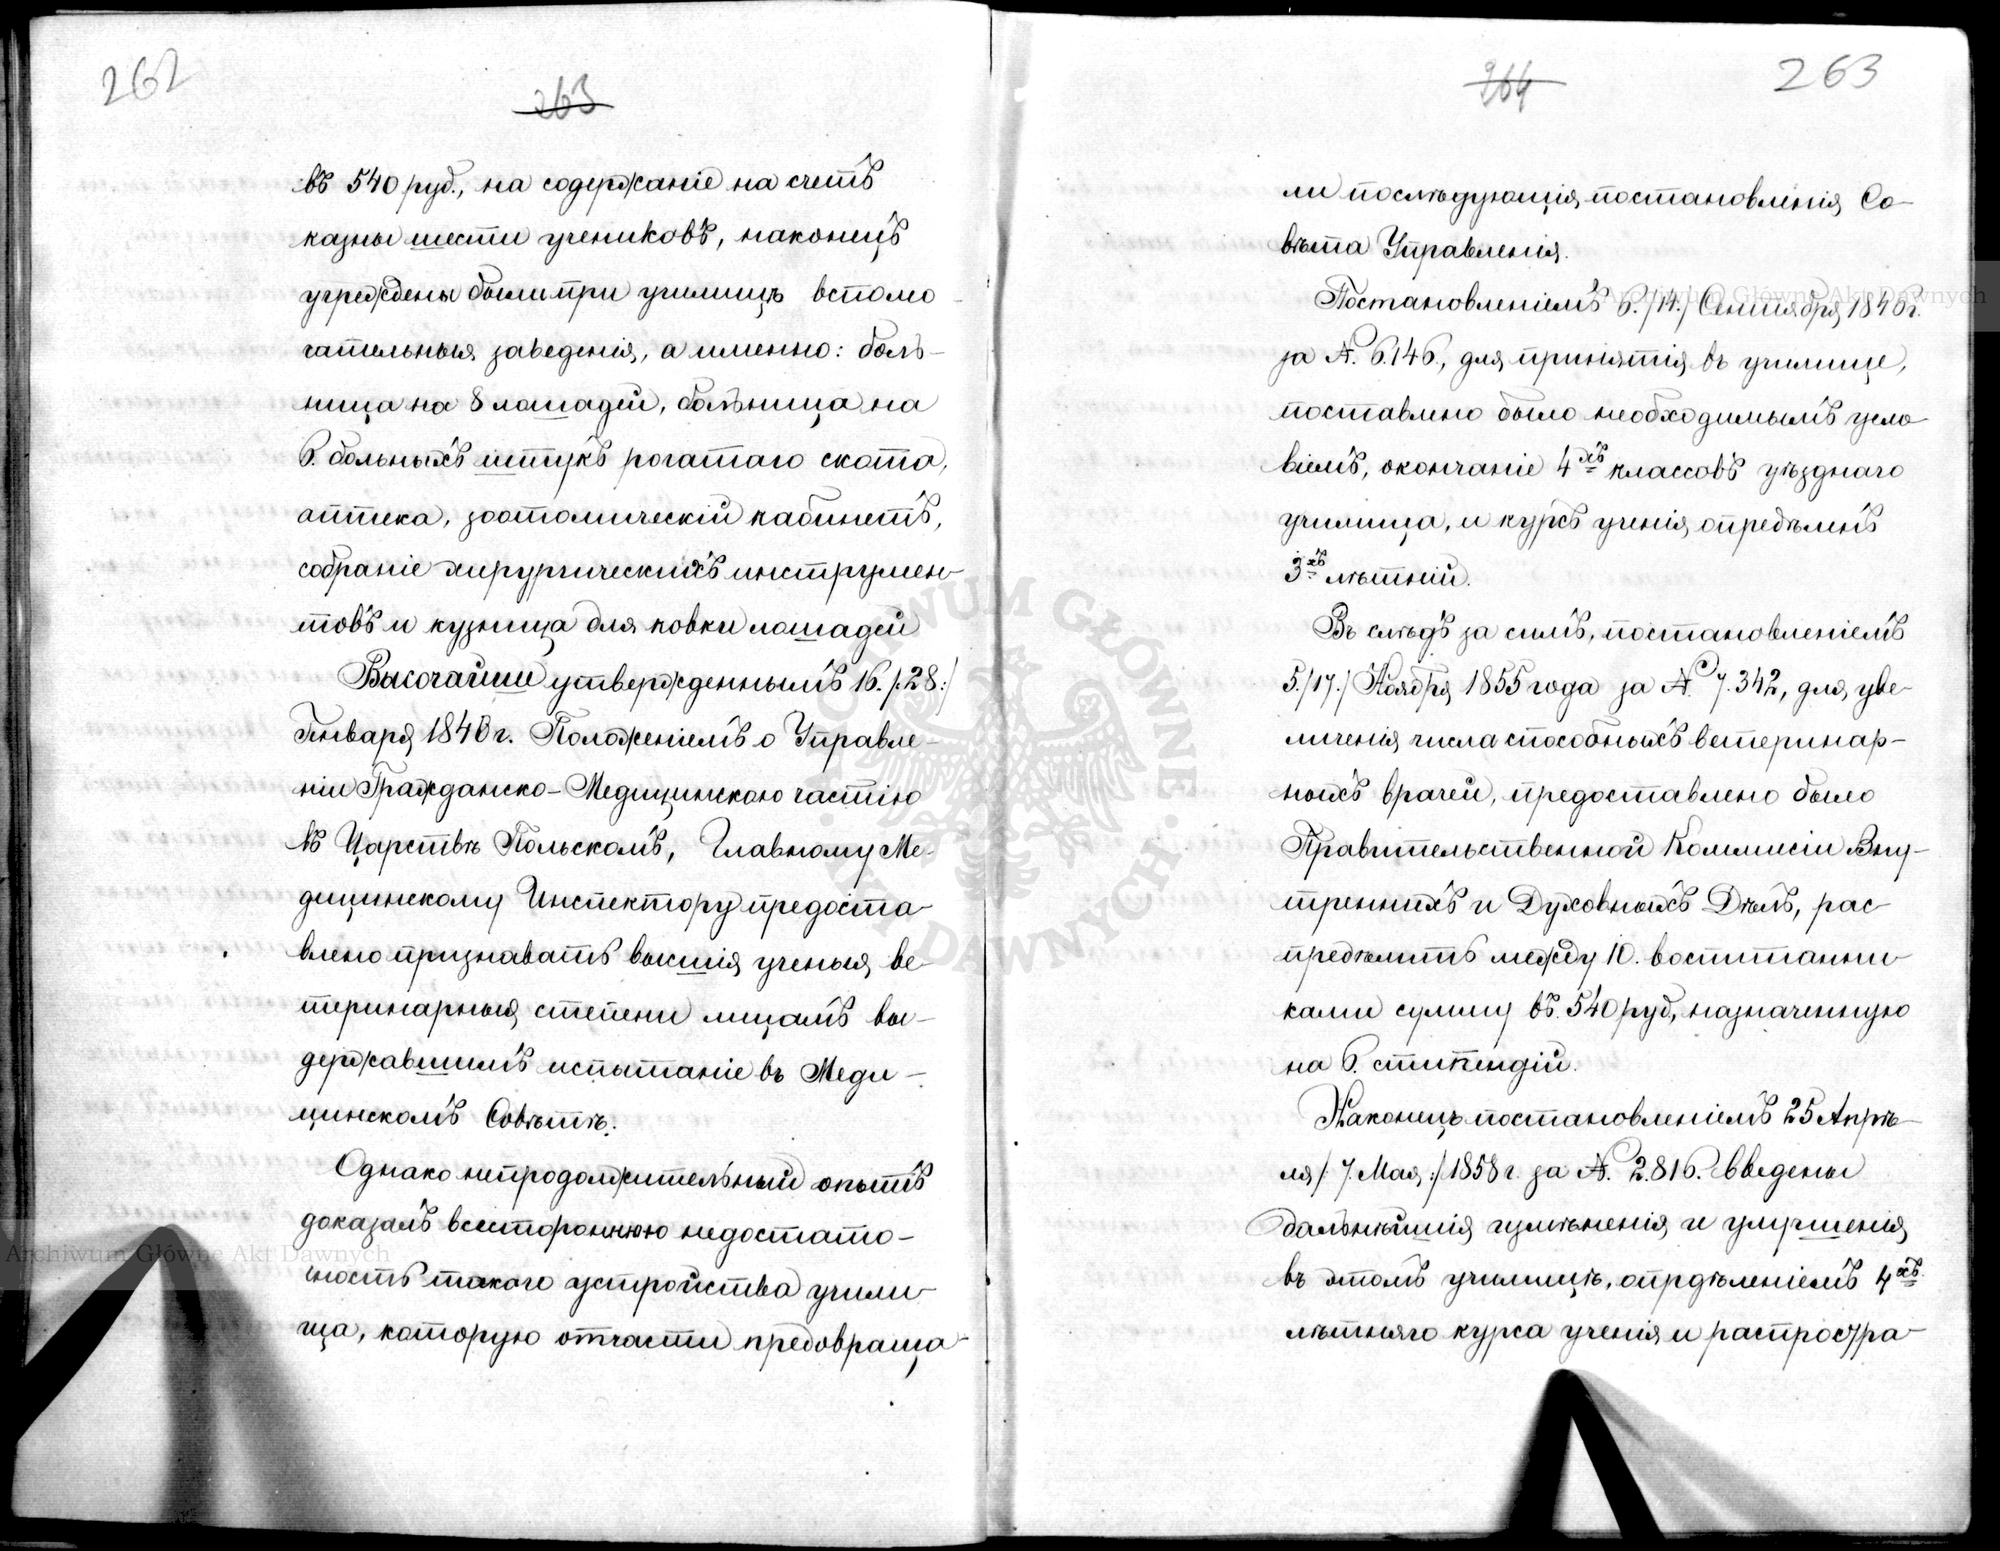 262
263
въ 540 руб., на содержаніе на счетъ
казны шести учениковъ, наконецъ
учреждены были при училищѣ вспомо-
гательныя заведенія, а именно: боль-
ница на 8 лошадей, больница на
6. больныхъ штукъ рогатаго скота,
аптека, зоотомическій кабинетъ,
собраніе хирургическихъ инструмен-
товъ и кузница для ковки лошадей
Высочайше утвержденнымъ 16. /:28:/
Января 1840 г. Положеніемъ о Управле-
ніи Гражданско-Медицинскою частію
въ Царствѣ Польскомъ, Главному Ме-
дицинскому Инспектору предоста-
влено признавать высшія ученыя ве-
теринарныя степени лицамъ вы-
державшимъ испытаніе въ Меди-
цинскомъ Совѣтѣ.
Однако непродолжительный опытъ
доказалъ всестороннюю недостато-
чность такого устройства учили-
ща, которую отчасти предовраща-
264
263
ли послѣдующія постановленія Со-
вѣта Управленія.
Постановленіемъ 6./14./ Сентября 1846 г.
за №. 6.146, для принятія въ училище,
поставлено было необходимымъ усло-
віемъ, окончаніе 4хъ классовъ уѣзднаго
училища, и курсъ ученія опредѣленъ
3хъ лѣтній.
Въ слѣдъ за симъ, постановленіемъ
5./17./ Ноября 1855 года за №. 7.342, для уве-
личенія числа способныхъ ветеринар-
ныхъ врачей, предоставлено было
Правительственной Коммисіи Вну-
треннихъ и Духовныхъ Дѣлъ, рас-
предѣлить между 10. воспитанни-
ками сумму въ 540 руб, назначенную
на 6. стипендій.
Наконецъ постановленіемъ 25 Апрѣ-
ля /:7. Мая:/ 1858 г. за №. 2.816. введены
дальнѣйшія измѣненія и улучшенія
въ этомъ училищѣ, опрдѣленіемъ 4хъ
лѣтняго курса ученія и распростра-
Archiwum Główne Akt Dawnych
Archiwum Główne Akt Dawnych
ARCHIWUM GŁÓWNE AKT DAWNYCH